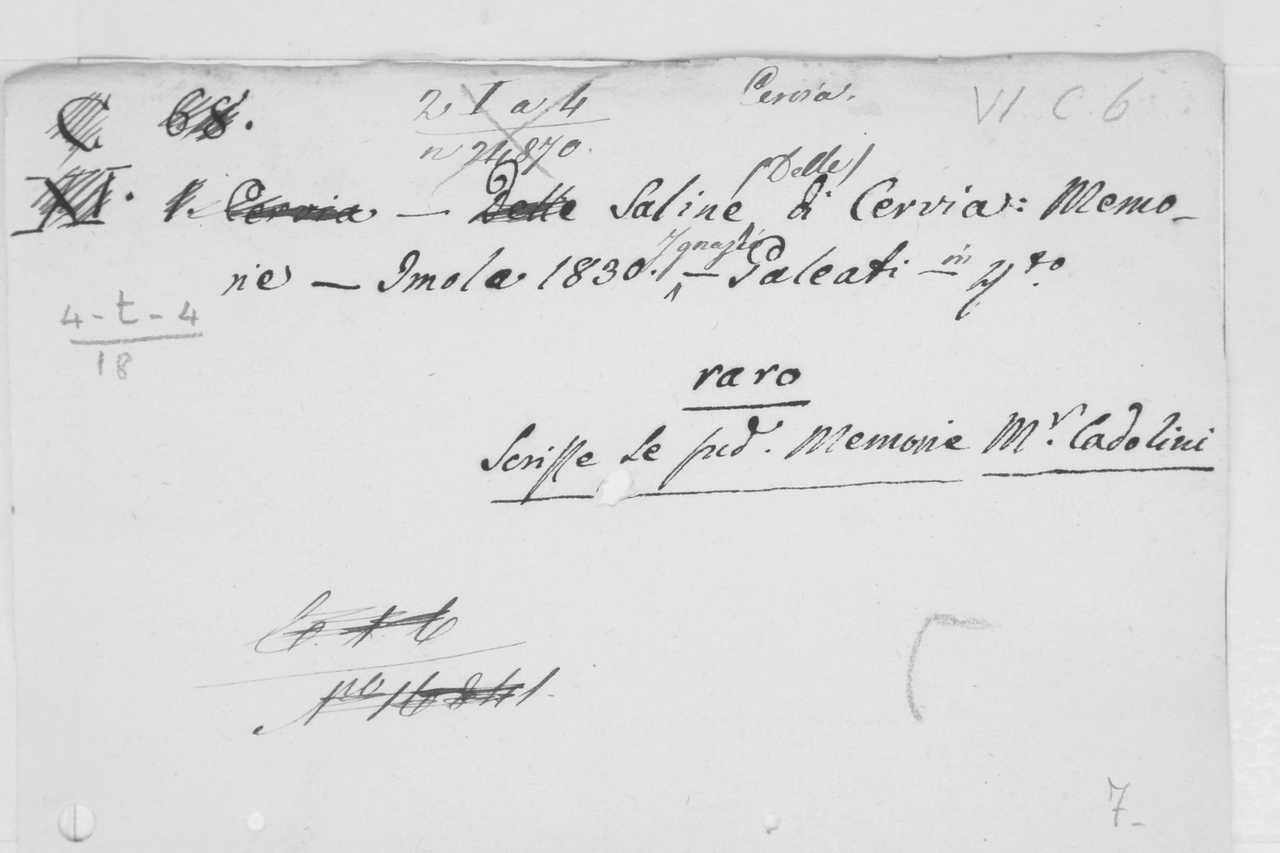 C 68. 2 I a 4 Cervia. VI C 6
n 24870.
XI. Cervia — Delle Saline (Delle) di Cervia: Memo-
rie — Imola 1830. Ignazio — Galeati — in 4to
4-t-4
18
raro
Scrisse le pred. Memorie Mr. Cadolini
No 16841.
7-